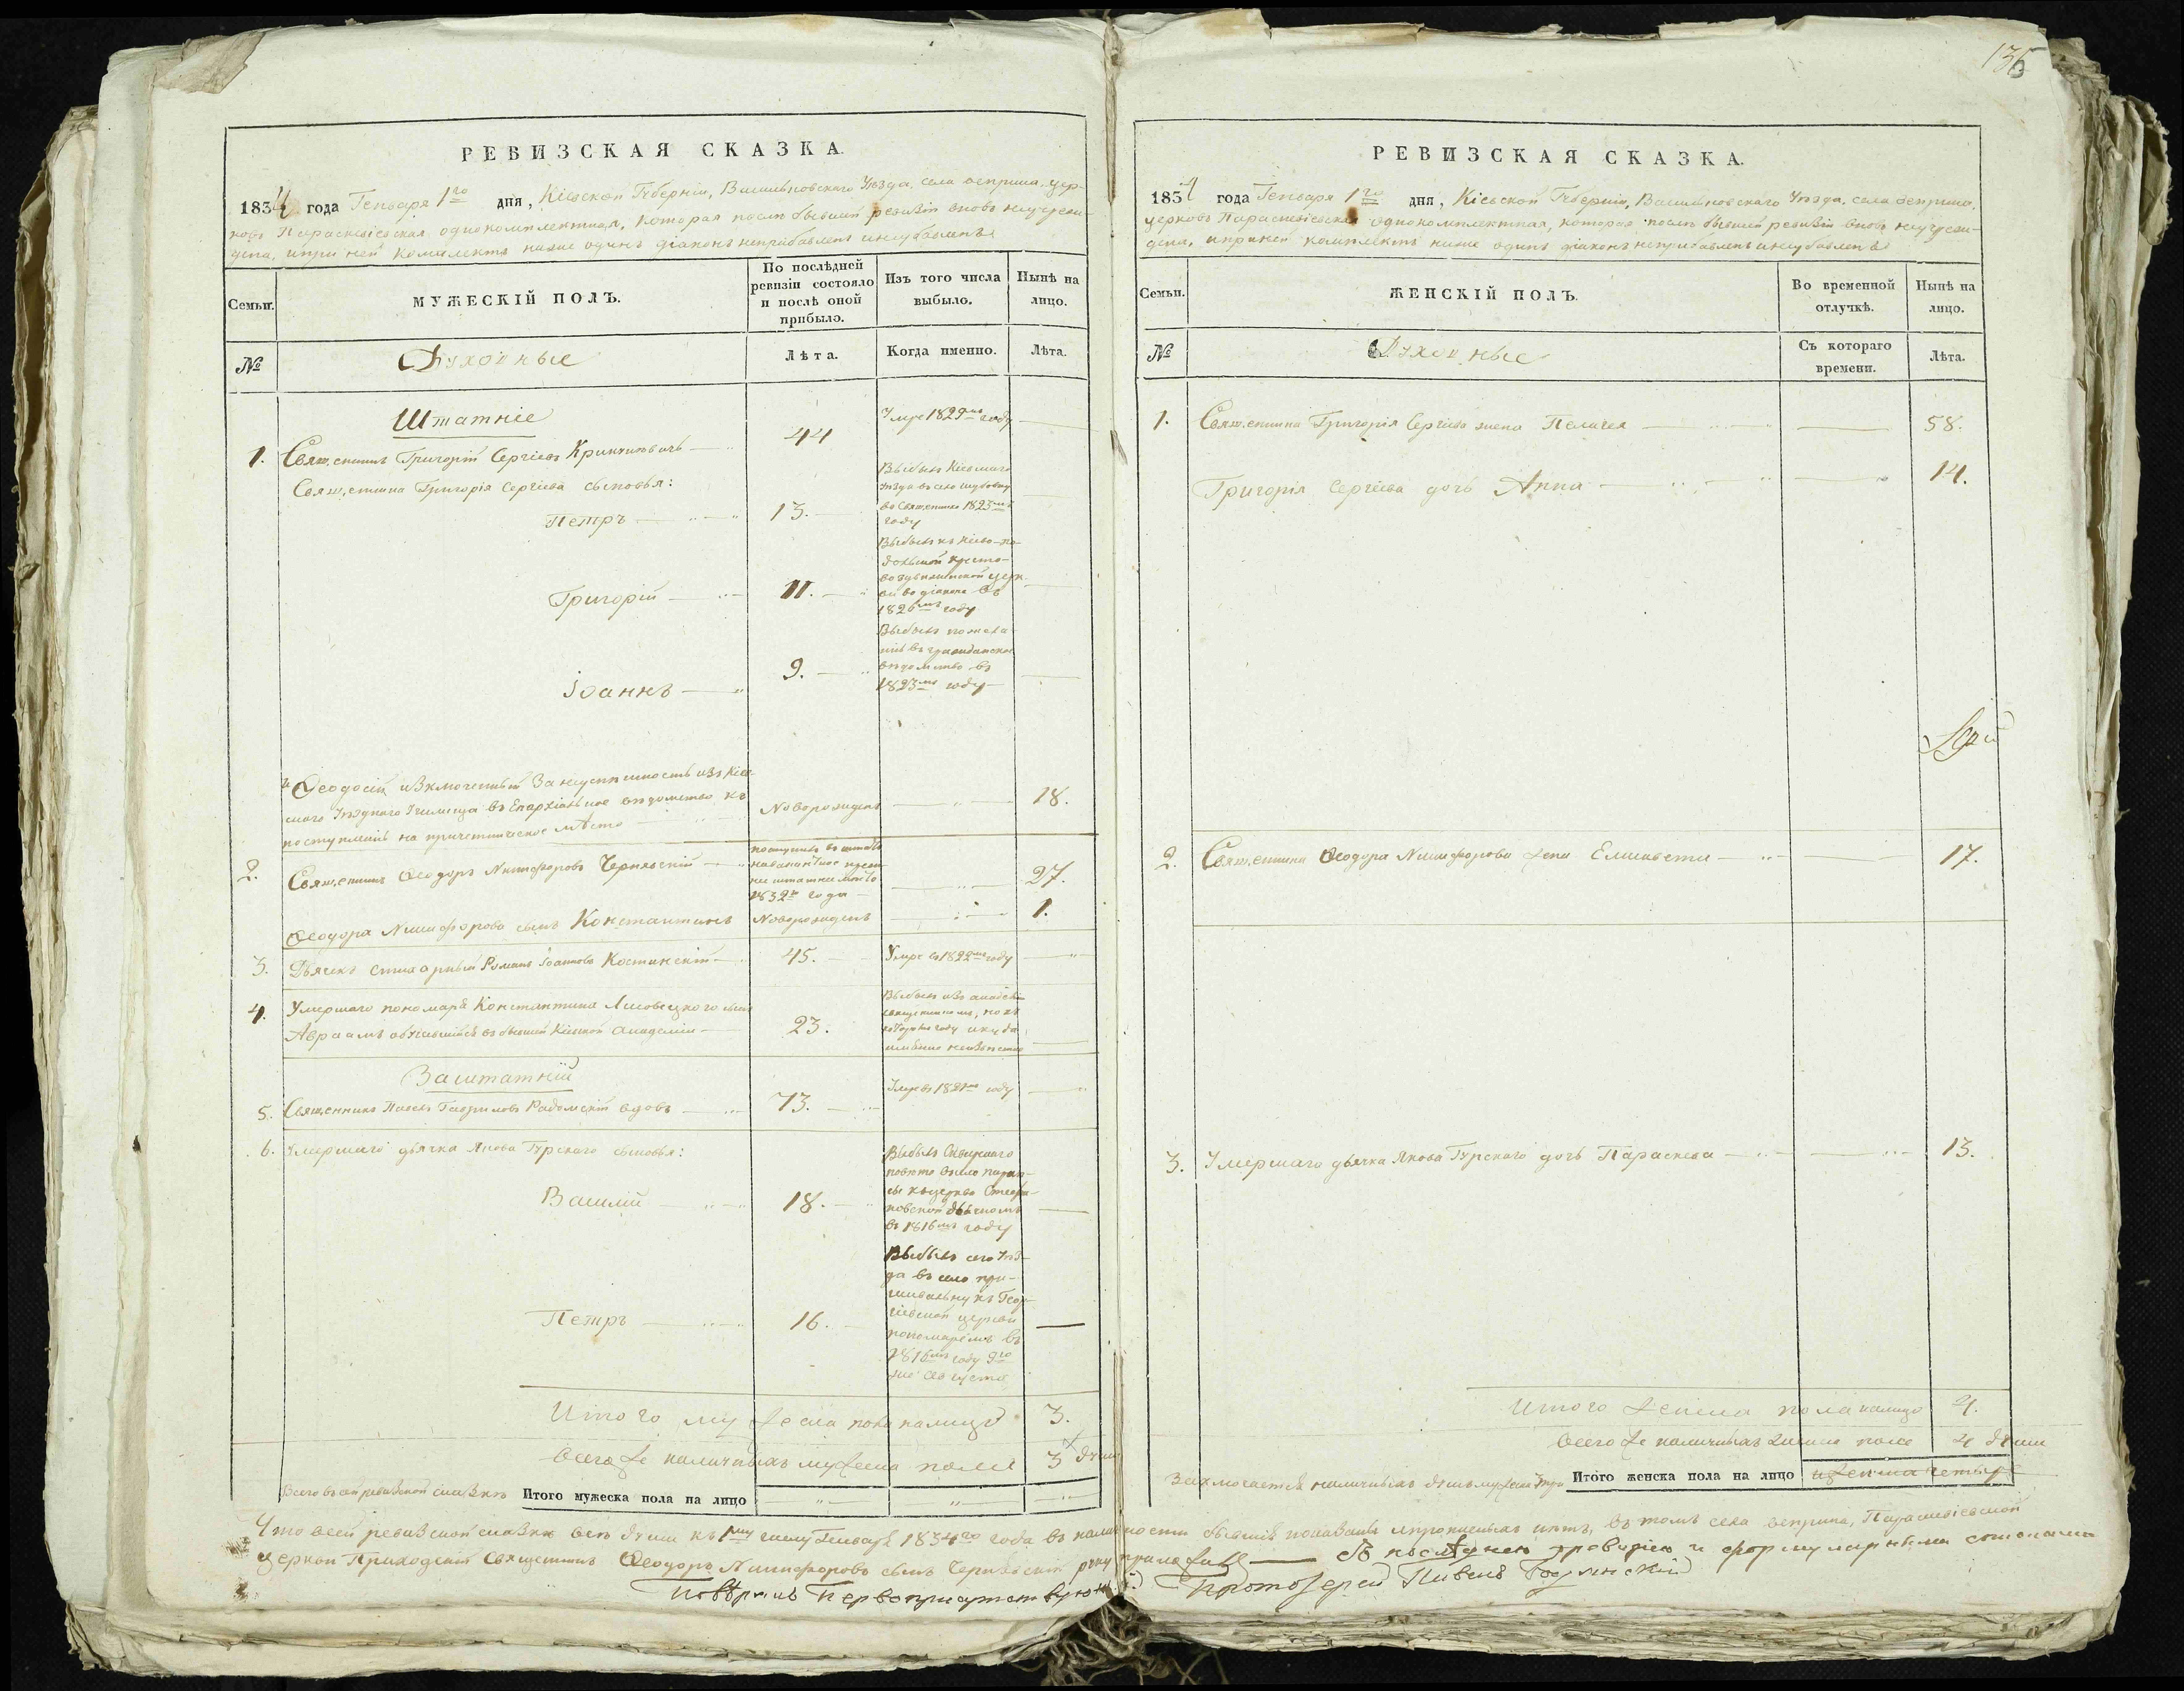 135
РЕВИЗСКАЯ СКАЗКА.
1834 года Генваря 1го дня, Кіевской Губерніи, Васильковскаго Уѣзда, села Веприка, цер-
ковъ Параскевіевская однокомплектная, которая послѣ бывшей ревизіи вновь неучреж-
дена, и при ней комплектъ ниже одинъ діаконъ неприбавленъ и неубавленъ
Семьи.
МУЖЕСКІЙ ПОЛЪ.
По послѣдней ревизіи состояло и послѣ оной прибыло.
Изъ того числа выбыло.
Нынѣ на лицо.
№
Духовные
Лѣта.
Когда именно.
Лѣта.
Штатніе
1. Священникъ Григорій Сергіевъ 44 Умре 1829го году
Священника Григорія Сергіева сыновья:
Петръ 13. Выбылъ Кіевскаго
Уѣзда въ село
во Священника 1823мъ
году
Григорій 11. Выбылъ къ Кіево-по-
дольской Кресто-
воздвиженской церк-
ви во діакона въ
1826мъ году
Іоаннъ 9. Выбылъ по жела-
нію въ гражданское
вѣдомство въ
1823мъ году
Ѳеодосій изключенный за неуспѣшность изъ Кіев-
скаго Уѣзднаго Училища въ Епархіальное вѣдомство къ
поступленію на причетническое мѣсто Новорожденъ 18.
2. Священникъ Ѳеодоръ Никифоровъ Чернявскій поступилъ 1832го года 27.
Ѳеодора Никифорова сынъ Константинъ Новорожденъ 1.
3. Дьячекъ стихарный Романъ Іоанновъ Костинскій 45. Умре въ 1822мъ году
4. Умершаго пономаря Константина Лисовецкого сынъ
Авраамъ обучавшійся въ бывшей Кіевской Академіи 23. Выбылъ изъ
году и куда
именно неизвѣстно
Заштатній
5. Священникъ Павелъ Гавриловъ Радомскій вдовъ 73. Умре въ 1821мъ году
6. Умершаго дьячка Якова Гурскаго сыновья:
Василій 18. Выбылъ Сквирскаго
повѣта въ село
къ церкви
дьячкомъ
въ 1816мъ году
Петръ 16. Выбылъ сего Уѣз-
да въ село при-
шивальну къ Геор-
гіевской церкви
пономаремъ въ
1816мъ году 9го
августа
Итого мужеска пола налицо 3.
Всего же наличныхъ мужеска пола 3 души
Всего въ сей ревизской сказкѣ Итого мужеска пола на лицо
РЕВИЗСКАЯ СКАЗКА.
1834 года Генваря 1го дня, Кіевской Губерніи, Васильковскаго Уѣзда, села Веприка,
церковь Параскевіевская однокомплектная, которая послѣ бывшей ревизіи вновь неучреж-
дена, и при ней комплектъ ниже одинъ діаконъ неприбавленъ и неубавленъ
Семьи.
ЖЕНСКІЙ ПОЛЪ.
Во временной отлучкѣ.
Нынѣ на лицо.
№
Духовные
Съ котораго времени.
Лѣта.
1. Священника Григорія Сергіева жена Пелагея 58.
Григорія Сергіева дочь Анна 14.
2. Священника Ѳеодора Никифорова жена Елисавета 17.
3. Умершаго дьячка Якова Гурскаго дочь Параскева 13.
Итого женска пола налицо 4.
Всего же наличныхъ женска пола 4 души
Заключается наличныхъ душъ мужска три Итого женска пола на лицо и женска четыре
Что всей ревизской сказкѣ всѣ души къ 1му числу Генваря 1834го года въ наличности бывшія показаны и прописныхъ нѣтъ, въ томъ села Веприка, Параскевіевской
церкви Приходскій Священникъ Ѳеодоръ Никифоровъ сынъ Чернявскій руку приложилъ
Повѣрилъ Первоприсутствующій Протоіерей